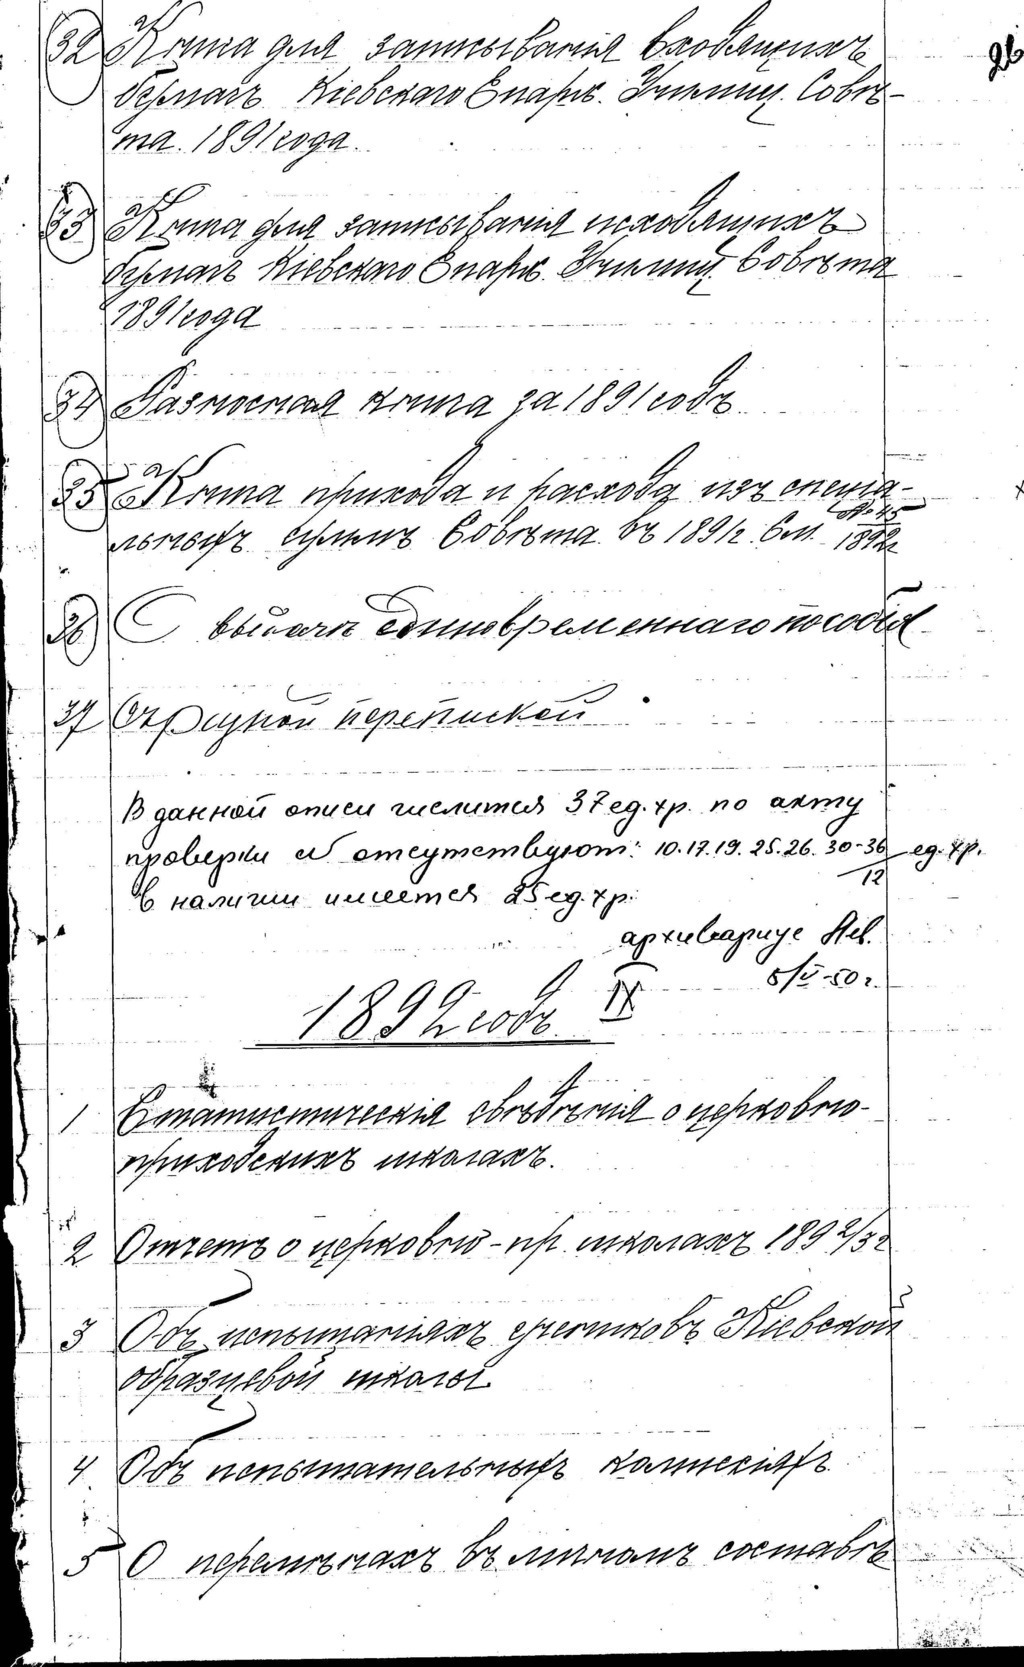 26
32 Книга для записыванія входящихъ
бумагъ Кіевскаго Епарх. Училищ. Совѣ-
та. 1891 года.
33 Книга для записыванія исходящихъ
бумагъ Кіевскаго Епарх. Училищ. Совѣта
1891 года
34 Разносная книга за 1891 годъ
35 Книга прихода и расхода изъ спеціа-
льныхъ суммъ Совѣта въ 1891 г. См. № 45
1892 г.
36 О выдачѣ единовременнаго пособія
37 Съ разной перепиской
В данной описи числится 37 ед. хр. по акту
проверки отсутствуют: 10. 17. 19. 25. 26. 30-36 ед. хр.
12
в наличии имеется 25 ед. хр.
архивариус
5/V-50 г.
1892 годъ IX
1 Статистическія свѣдѣнія о церковно-
приходскихъ школахъ.
2 Отчетъ о церковно-пр. школахъ 1892/3 г
3 Объ испытаніяхъ учениковъ Кіевской
образцевой школы
4 Объ испытательныхъ комисіяхъ
5 О перемѣнахъ въ личномъ составѣ